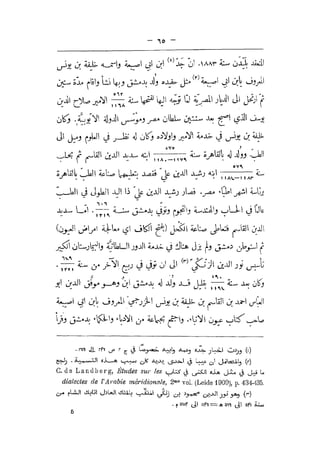 — ٦٥ —
المنعقد بليدن سنة ١٨٨٣. انّ جدّ (٨) ابن ابي اصيبعة واسمه خليفة بن يونس
المعروف بابن ابي اصيبعة (٢) مثل حفيده وُلد بدمشق وبها نشأ واقام مدة سنين
ثم ارتحل الى الديار المصرية لمّا توجّه اليها لفتحها سنة ٥٦٢/١١٦٨ الامير صلاح الدين
يوسف الذي اصبح بعد سنتين سلطان مصر ومؤسس الدولة الايّوبيّة. وكان
خليفة بن يونس في خدمة الامير واولاده وكان له نظر في العلوم وميل الى
الطبّ وولد له بالقاهرة سنة ٥٧٥/١١٧٩—١١٨٠ ابنه سديد الدين القاسم ثم بحلب
سنة ٥٧٩/١١٨٣—١١٨٤ ابنه رشيد الدين عليّ فقصد بتعليمهما صناعة الطبّ بالقاهرة
رئاسة اشهر اطبّاء مصر. فصار رشيد الدين عليّ ذا اليد الطولى في الطبّ
عالمًا في الحساب والهندسة والنجوم وتوفي بدمشق سنة ٦٠٦/١٢١٠. امّا سديد
الدين القاسم فتعاطى صناعة الكحل (اكّاف اي معالجة امراض العيون)
ثم استوطن دمشق ولم يزل هناك في خدمة الدور السلطانيّة والبيمارستان الكبير
تأسيس نور الدين الزنكي (٣) الى ان توفي في ربيع الآخر من سنة ٦٤٩/١٢٥١.
وكان بعد سنة ٥٩٠/١١٩٤ بقليل قد ولد له بدمشق ابنٌ وهو موفّق الدين ابو
العبّاس احمد بن القاسم بن خليفة بن يونس الخزرجيّ المعروف بابن ابي اصيبعة
صاحب كتاب عيون الانباء. واجتمع بجماعة من الاطباء والحكماء بدمشق وقرأ
(١) وردت اخبار جدّه وعمه وابيه خصوصًا في ج ٢ ص ٢٤٦ الى ٢٥٠.
C. de Landberg, Études sur les
dialectes de l'Arabie méridionale, 2me vol. (Leide 1909), p. 434-435.
(٣) وهو نور الدين محمود بن زنكي الملقّب بالملك العادل اتابك الشام من
سنة ٥٤١ الى ٥٦٩
٥